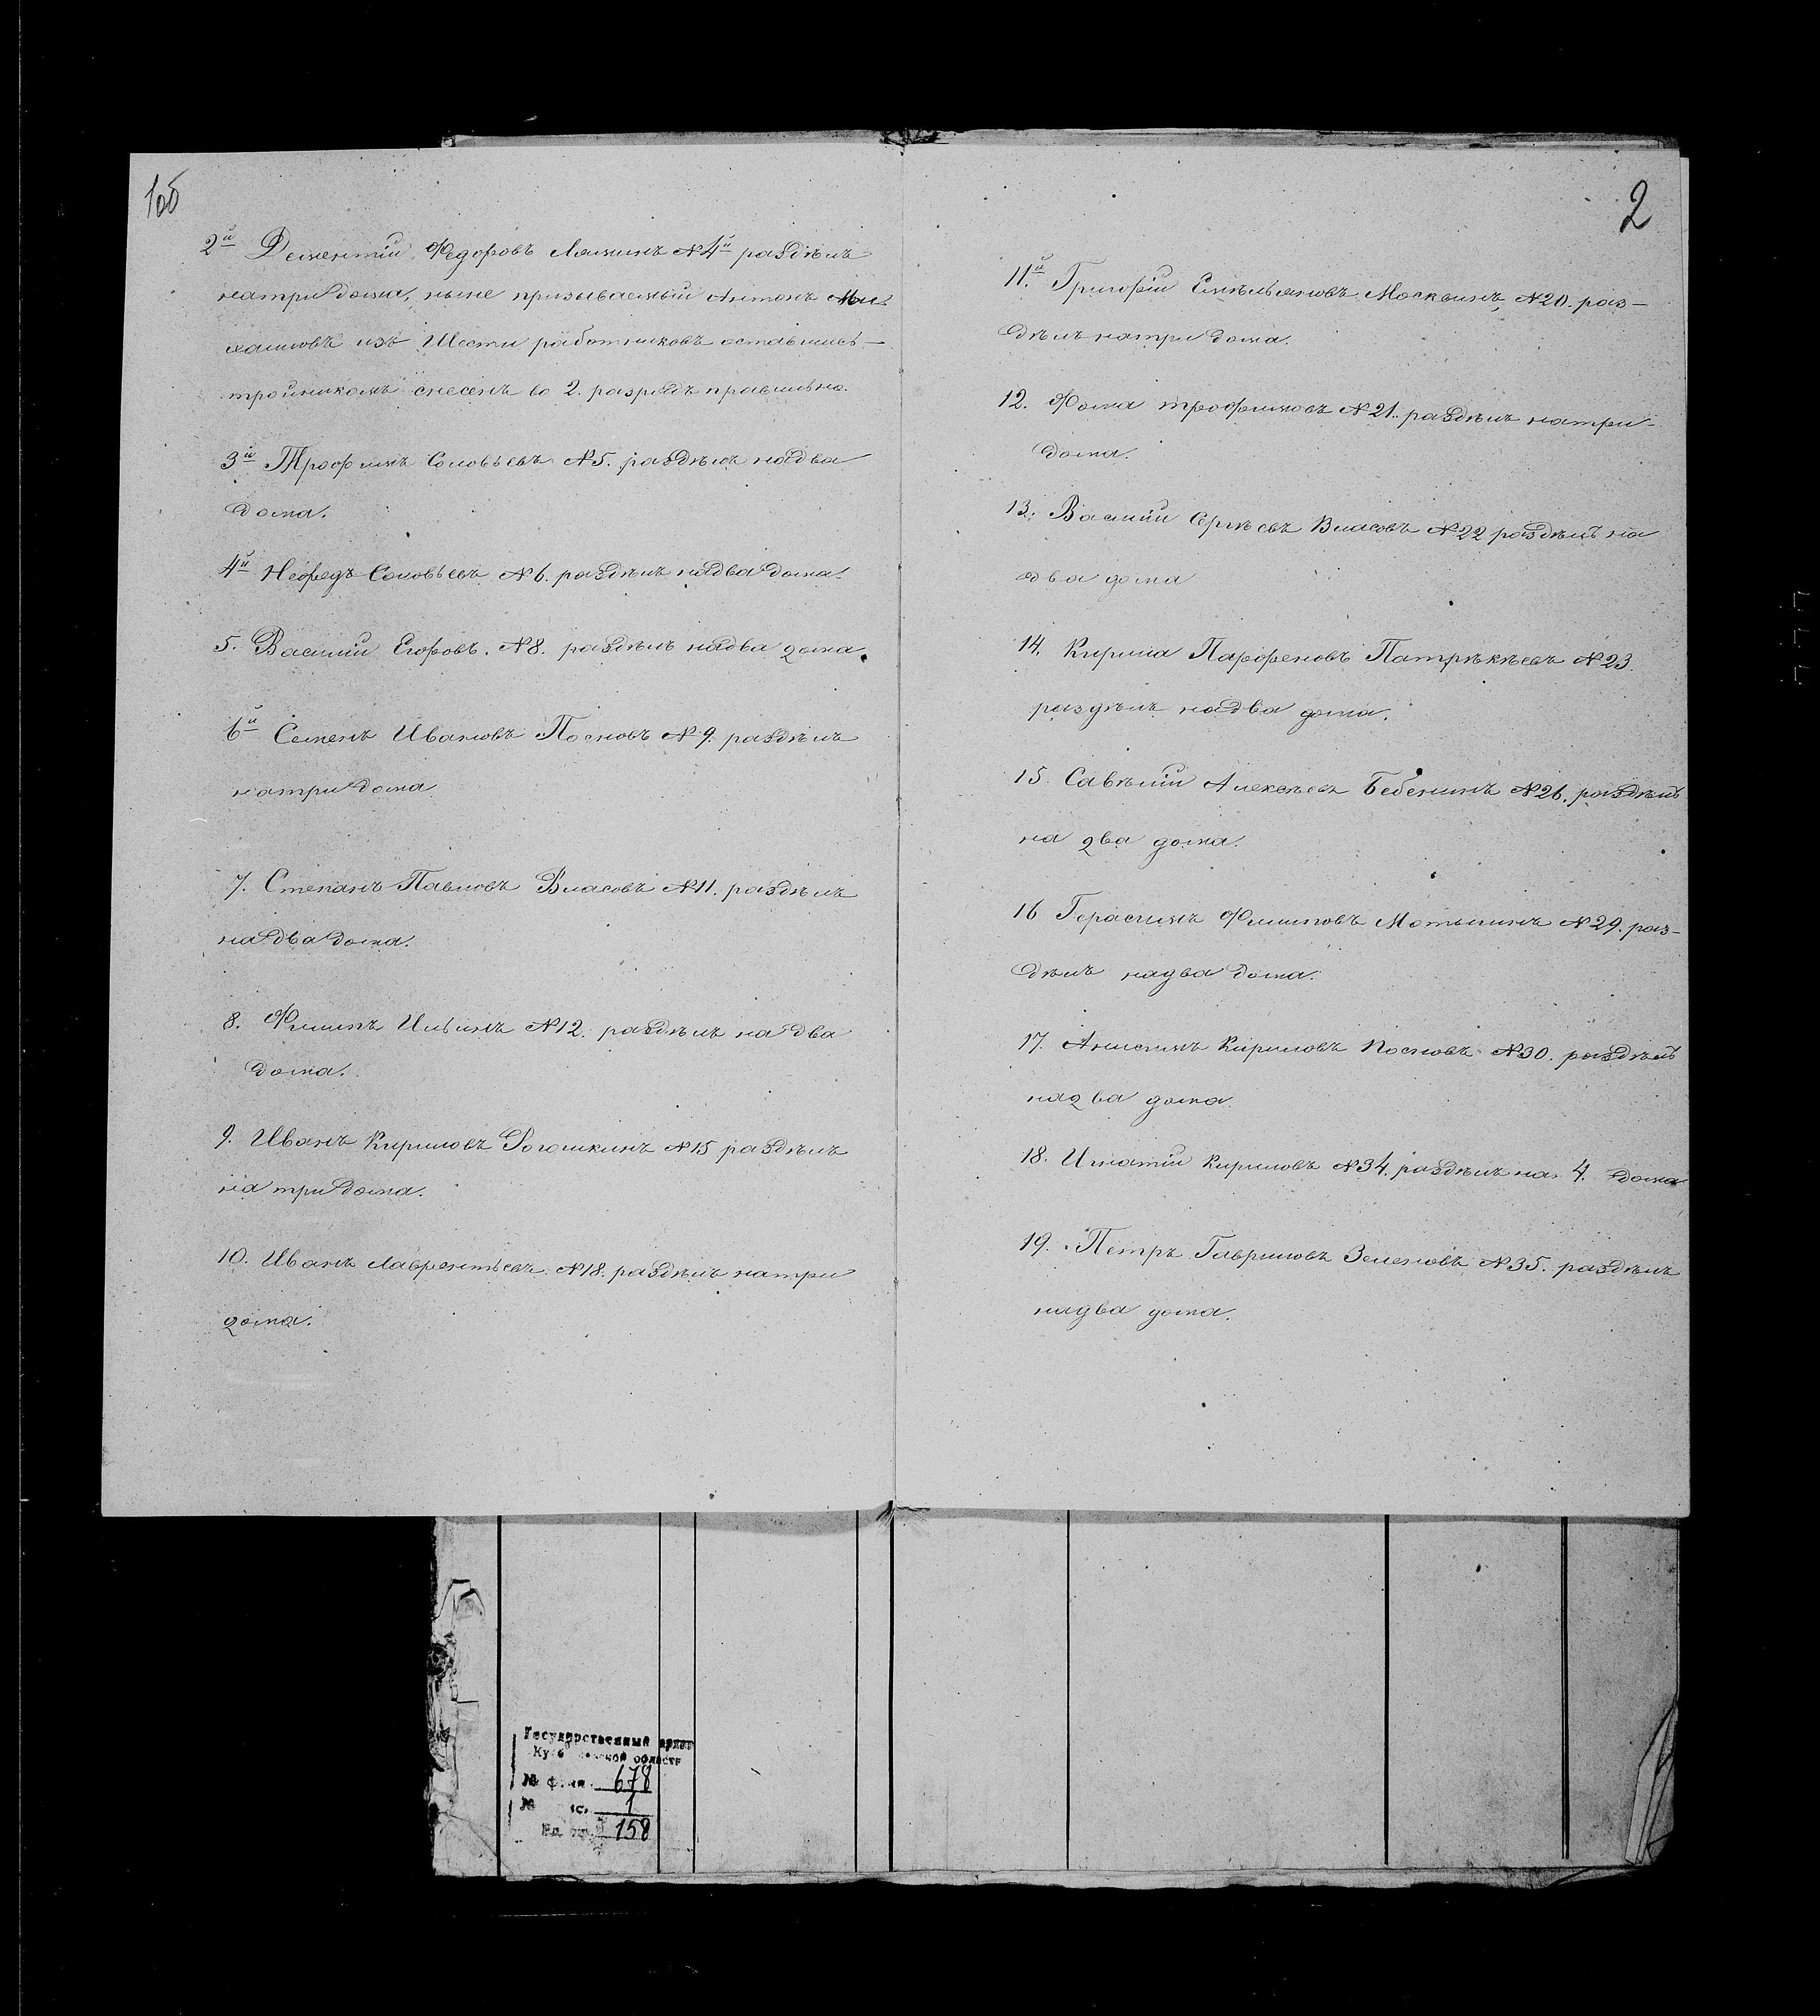 1об
2й Дементій Федоровъ Лямин N 4й раздѣлъ
на три дома, ныне призываемый Антонъ Ми-
хайловъ изъ Шести работниковъ оставшись
тройникомъ снесенъ во 2. разрядъ правильно.
3й Трофимъ Соловьевъ N 5. раздѣлъ на два
дома.
4й Нефедъ Соловьевъ N 6. раздѣлъ на два дома.
5. Василий Егоровъ. N 8. раздѣлъ на два дома.
6й Семенъ Ивановъ Посновъ N 9. раздѣлъ
на три дома
7. Степанъ Павловъ Власовъ N 11. раздѣлъ
на два дома.
8. Филипъ Ильинъ N 12. раздѣлъ на два
дома.
9. Иванъ Кириловъ Рогошкинъ N 15 раздѣлъ
на три дома.
10. Иванъ Лаврентьевъ N 18. раздѣлъ на три
дома.
2
11.й Григорій Емельяновъ Москвинъ, N 20. раз-
дѣлъ на три дома.
12. Фома трофимовъ N 21. раздѣлъ на три-
дома.
13. Василий Сергѣевъ Власовъ N 22 раздѣлъ на
два дома
14. Кирила Парфеновъ Патрѣкѣевъ N 23.
раздѣлъ на два дома.
15. Савѣлій Алексѣевъ Бебенинъ N 26. раздѣлъ
на два дома.
16 Герасимъ Филиповъ Мотынинъ N 29. раз-
дѣлъ на два дома.
17. Анисимъ Кириловъ Посновъ N 30. раздѣлъ
на два дома.
18. Игнатій Кириловъ N 34. раздѣлъ на 4. дома
19. Петръ Гавриловъ Зеленовъ N 35. раздѣлъ
на два дома.
Государственный архив
области
№ 678
№ 1
158